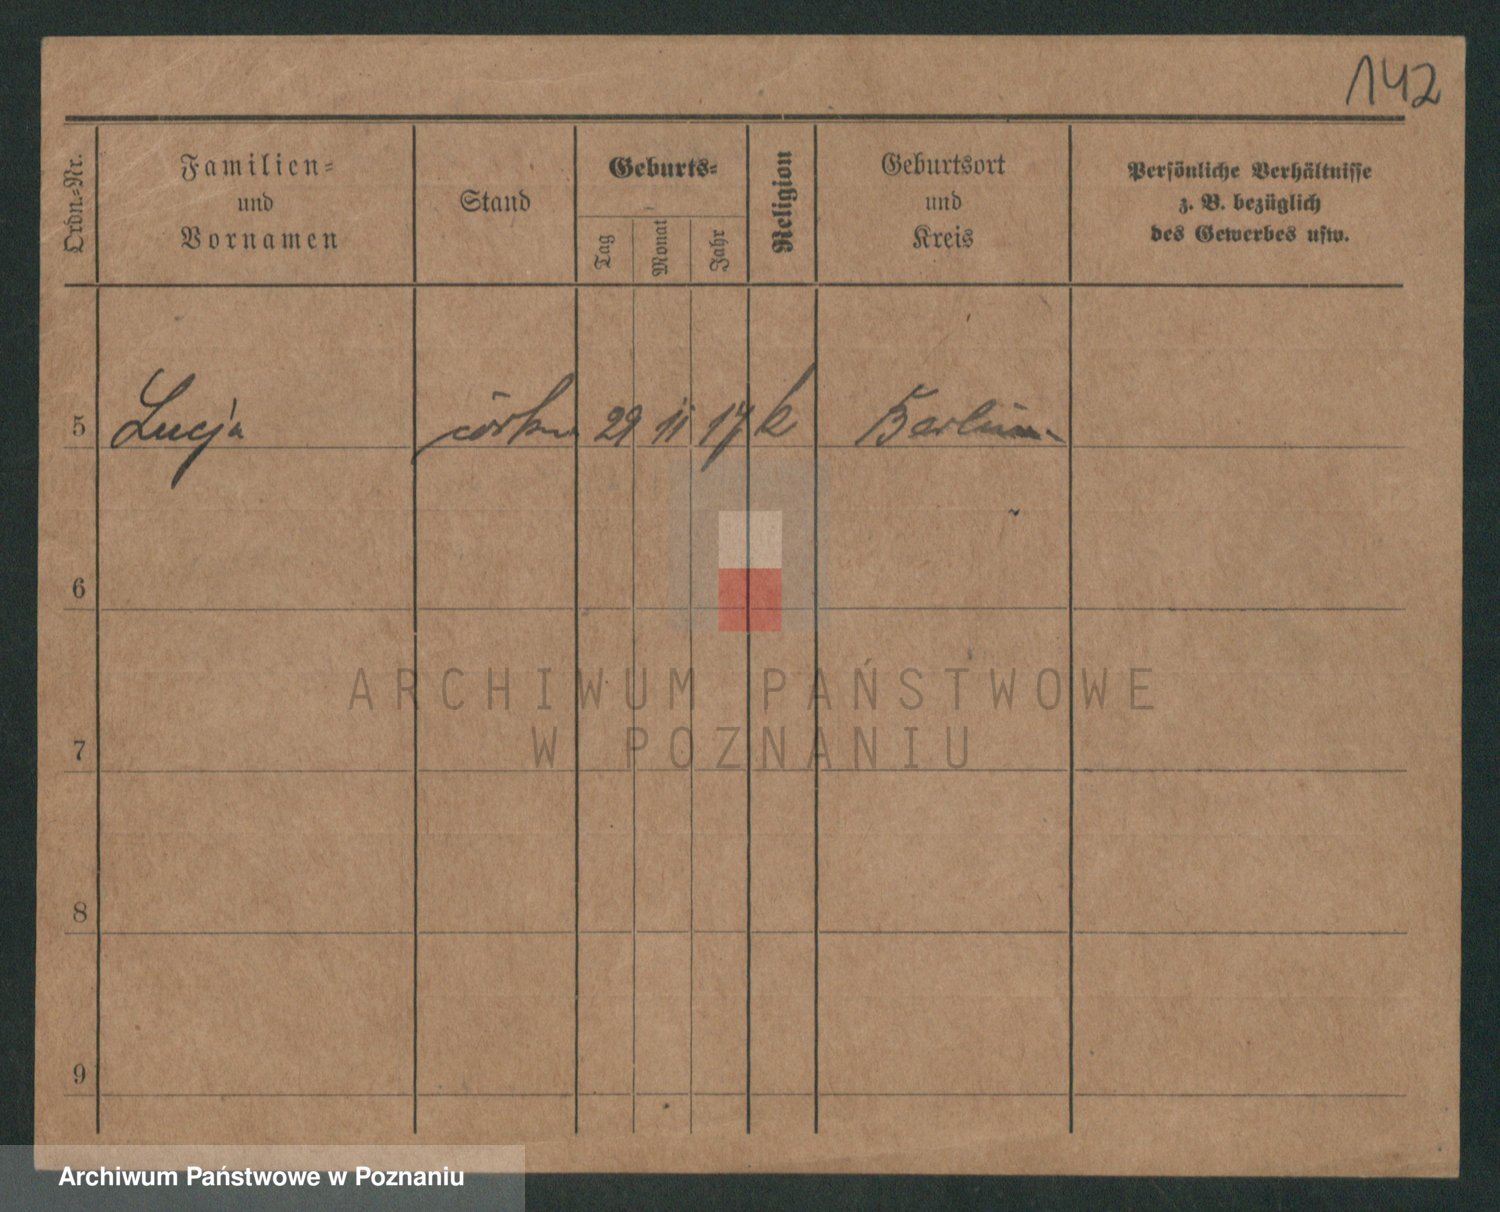 142
Ordn.=Nr.
Familien=
und
Vornamen
Stand
Geburts=
Tag
Monat
Jahr
Religion
Geburtsort
und
Kreis
Persönliche Verhältnisse
z. B. bezüglich
des Gewerbes usw.
5 Lucja córka 29 11 17 k Berlin
6
7
8
9
ARCHIWUM PAŃSTWOWE
W POZNANIU
Archiwum Państwowe w Poznaniu